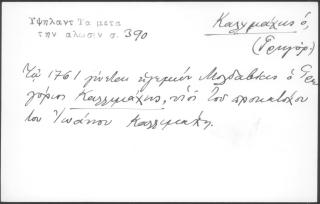 Υψηλαντ Τα μετα
την αλωσιν σ. 390
Καλλιμάχης ὁ,
(Γρηγόρ.)
Τῷ 1761 γίνεται ἡγεμών Μολδαβίας ὁ Γρη
γόριος Καλλιμάχης, υἱός τοῦ προκατόχου
του Ἰωάννου Καλλιμάχη.